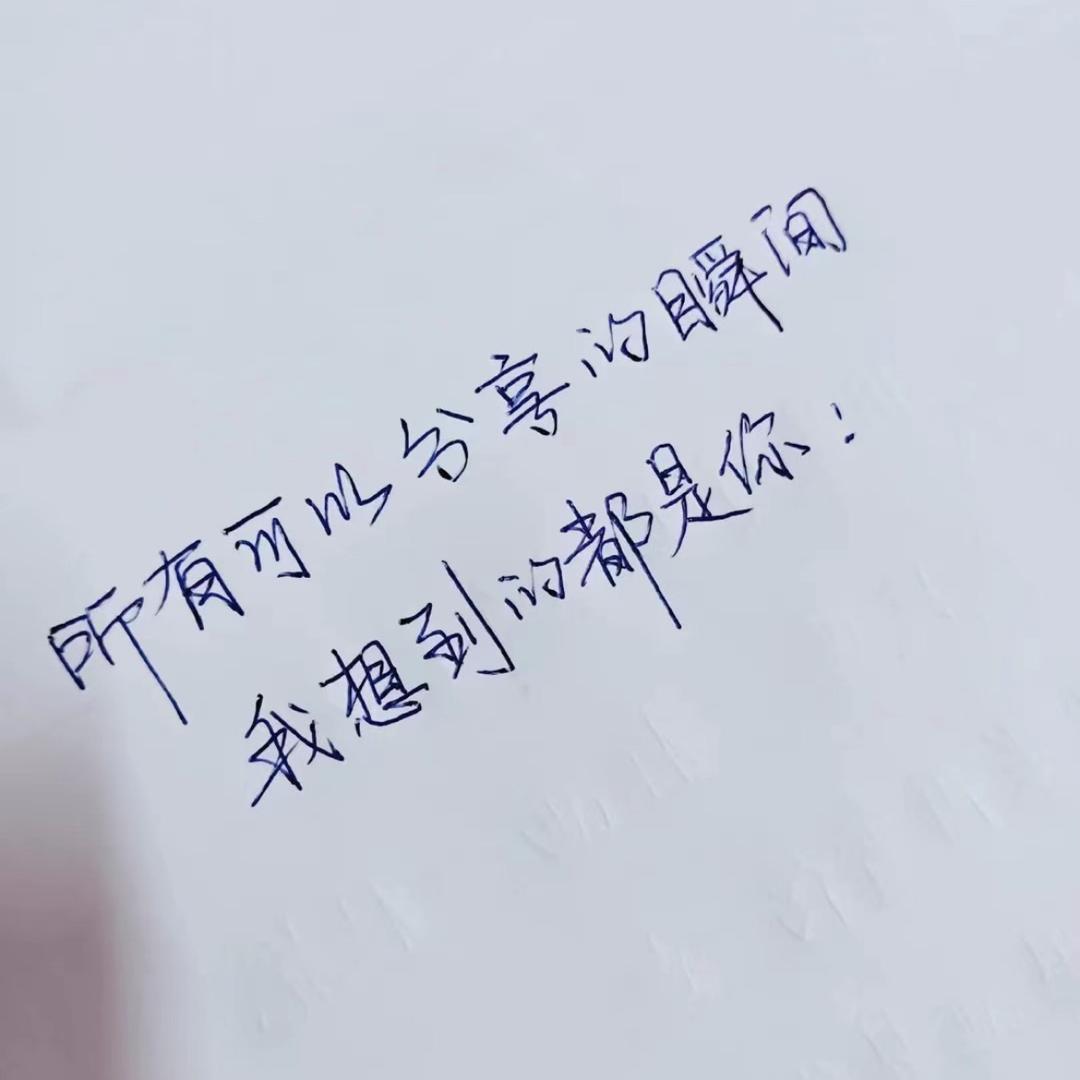 所有可以分享的瞬间
我想到的都是你：